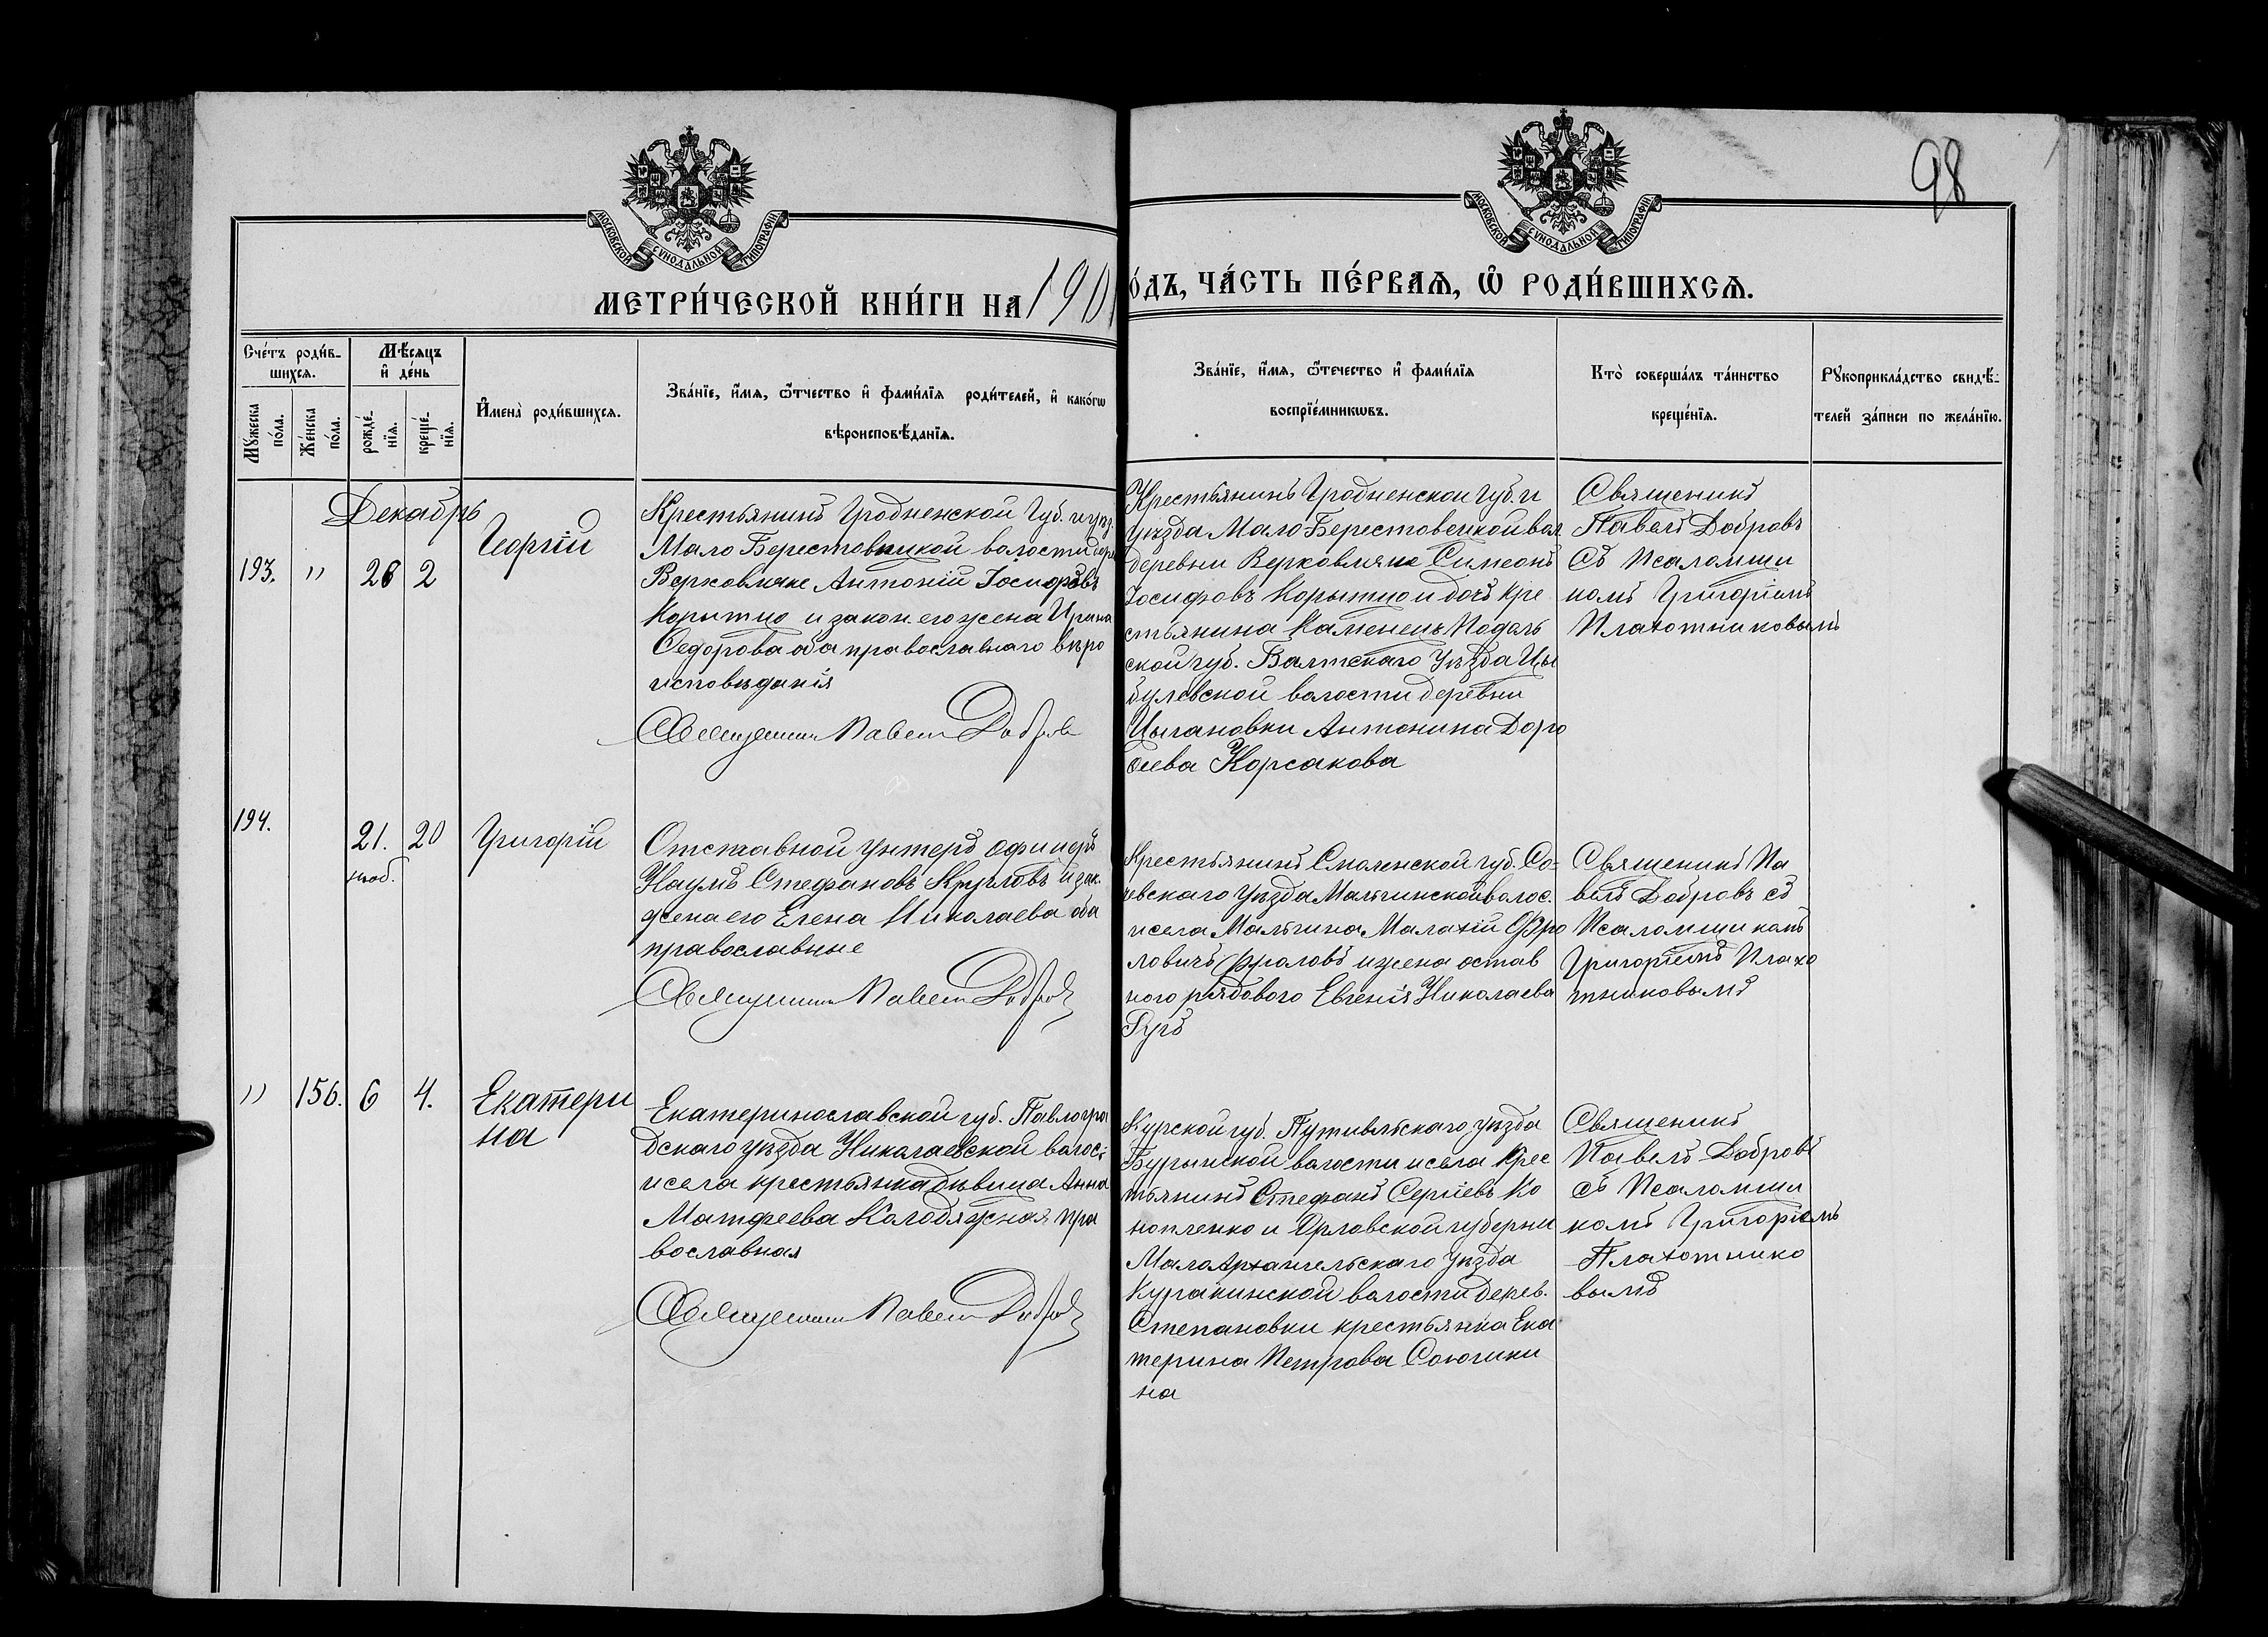 98
МОСКОВСКОЙ СѴНОДАЛЬНОЙ ТИПОГРАФІИ
МОСКОВСКОЙ СѴНОДАЛЬНОЙ ТИПОГРАФІИ
МЕТРИ́ЧЕСКОЙ КНИ́ГИ НА 190
О́ДЪ, ЧА́СТЬ ПЕ́РВАѦ, Ѽ РОДИ́ВШИХСѦ.
Сче́тъ роди́в-
шихсѧ.
Мѣ́сѧцъ
и҆ де́нь
Мꙋ́жеска
по́ла.
Же́нска
по́ла.
рожде́-
нїѧ.
креще́-
нїѧ.
И҆мена̀ роди́вшихсѧ.
Зва́нїе, и҆́мѧ, ѻ҆́тчество и҆ фами́лїѧ роди́телей, и҆ како́гѡ
вѣроисповѣ́данїѧ.
Зва́нїе, и҆́мѧ, ѻ҆те́чество и҆ фами́лїѧ
воспрїе́мникѡвъ.
Кто̀ соверша́лъ та́инство
креще́нїѧ.
Рꙋкоприкла́дство свидѣ́-
телей за́писи по жела́нїю.
Декабрь
193.
"
26
2
Георгій
Крестьянинъ Гродненской Губ. и узз.
Мало Берестовицкой волости дере
Верховляне Антоній Іосифовъ
Корытко и закон. его жена Ирина
Ѳедорова оба православнаго вѣро
исповѣданія
Священникъ Павелъ Добровъ
Крестьянинъ Гродненской Губ. и
уѣзда Мало Берестовецкой вол
деревни Верховляне Симеонъ
Іосифовъ Корытко и дочь кре
стьянина Каменецъ Подоль
ской губ. Балтскаго уѣзда Цы
булевской волости деревни
Цыгановки Антонина Доро
ѳеева Корсакова
Священикъ
Павелъ Добровъ
съ Псаломщи
комъ Григоріемъ
Плахотниковымъ
194.
21.
нояб.
20
Григорій
Отставной унтеръ офицеръ
Наумъ Стефановъ Кругловъ и зак.
жена его Елена Николаева оба
православные
Священникъ Павелъ Добровъ
Крестьянинъ Смоленской губ. Со-
евскаго уѣзда Мальгинской волос.
и села Мальгина Малахій Фро
ловичъ Фроловъ и жена остав
ного рядового Евгенія Николаева
Гугъ
Священикъ Па
велъ Добровъ съ
Псаломщикомъ
Григоріемъ Плахо
тниковымъ
"
156.
6
4.
Екатери
на
Екатеринославской губ. Павлогра
дскаго уѣзда Николаевской волос.
и села крестьянка дѣвица Анна
Матфеева Колодяжная пра
вославная
Священникъ Павелъ Добровъ
Курской губ. Путивльскаго уѣзда
Бурынской волости и села Крес
тьянинъ Стефанъ Сергіевъ Ко
нопленко и Орловской губерни
Малоархангельскаго уѣзда
Куракинской волости дерев.
Степановки крестьянка Ека
терина Петрова Союшки
на
Священикъ
Павелъ Добровъ
съ Псаломщи
комъ Григоріемъ
Плахотнико
вымъ